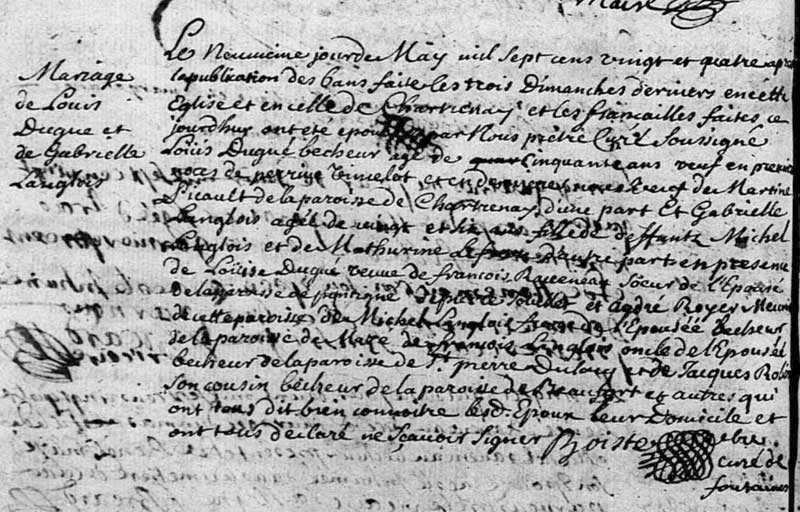 Mariage
de Louis
Dugue et
de Gabrielle
Langlois
Le Neuvieme jour de May mil sept cens vingt et quatre apres
la publication des bans faite les trois Dimanches derniers en cette
Eglise et en celle de Chartrenay et les fiancailles faites ce
jourdhuy ont eté epousés par Nous prêtre Curé Soussigné
Louis Dugué becheur agé de cinquante ans veuf en premieres
noces de perrine et en dernieres noces veuf de Martine
Picault de la paroisse de Chartrenay d'une part Et Gabrielle
Langlois agée de vingt et six ans fille de deffuntz Michel
Langlois et de Mathurine d'autre part en presence
de Louise Dugué veuve de francois Raveneau Soeur de l'Epoux
de la paroisse de de pierre et André Royer
de cette paroisse de Michel Langlois frere de l'Epousée becheur
de la paroisse de Mazé de francois Langlois oncle de l'Epousée
becheur de la paroisse de St pierre Dulacq et de Jacques
Son cousin becheur de la paroisse de Beaufort et autres qui
ont tous dit bien connoitre lesd. Epoux leur Domicile et
ont tous declaré ne Sçavoir Signer
curé de
fontaines